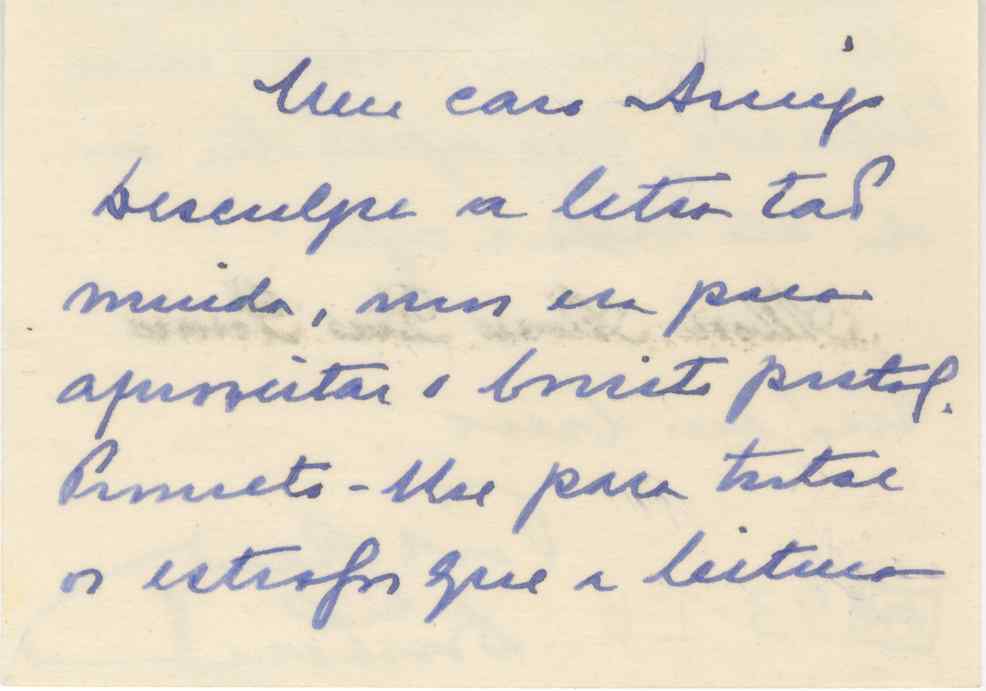 Meu caro Amigo
Desculpe a letra tão
miuda, mas era para
aproveitar o bonito postal.
Prometo-lhe para tratar
os estrofes que a leitura